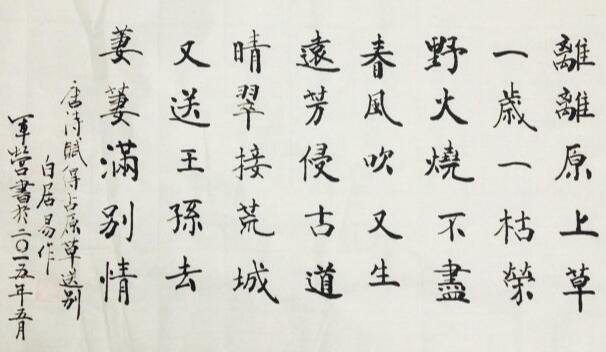 離離原上草
一歲一枯榮
野火燒不盡
春風吹又生
遠芳侵古道
晴翠接荒城
又送王孫去
萋萋滿別情
唐詩賦得古原草送別
白居易作
軍營書於二〇一五年五月